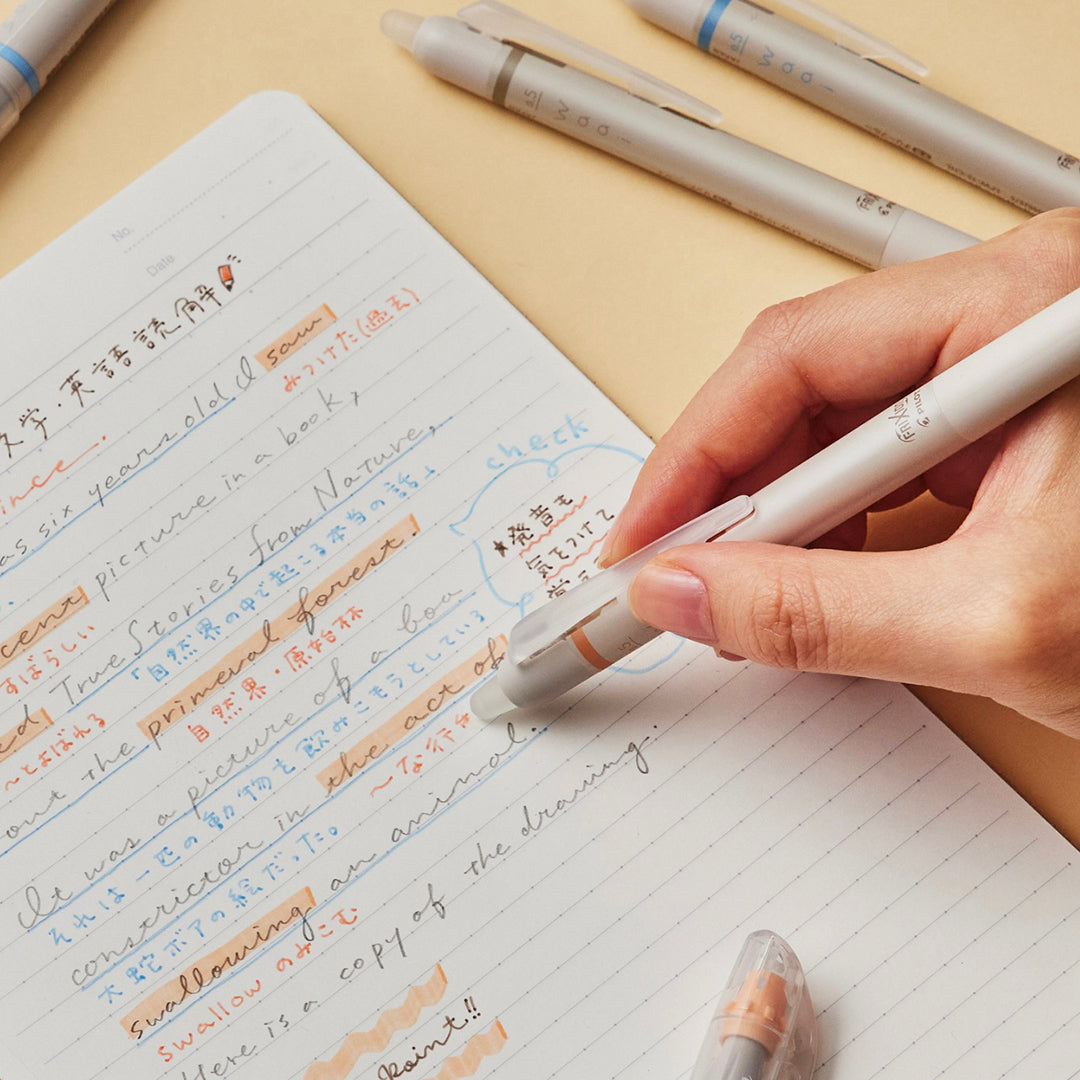 No.
Date
文学・英語読解
ince.
as six years old I saw
みつけた(過去)
cent picture in a book,
すばらしい
ed True Stories from Nature,
〜とよばれる
「自然界の中で起こる本当の話」
out the primeval forest.
自然界・原始林
It was a picture of a boa
それは一匹の動物を飲みこもうとしている
constrictor in the act of
〜な行為
大蛇ボアの絵だった。
swallowing an animal.
swallow のみこむ
Here is a copy of the drawing.
Point!!
check
★発音も
気をつけて
FRIXION
PILOT
0.5
Waai
0.5
Waai